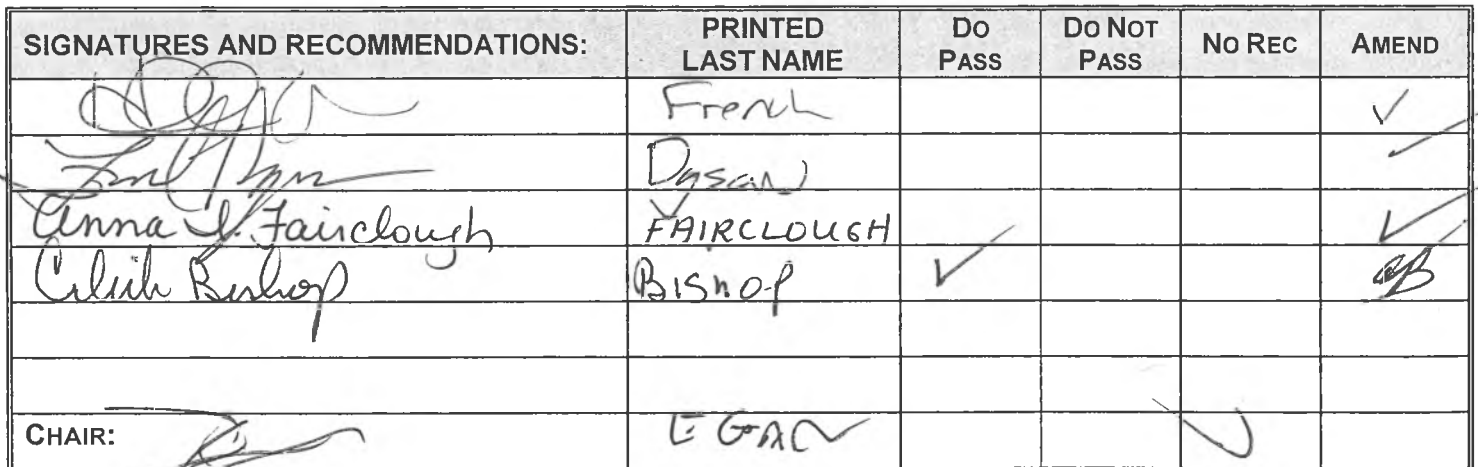 SIGNATURES AND RECOMMENDATIONS: PRINTED LAST NAME DO PASS DO NOT PASS NO REC AMEND
French ✓
Dyson ✓
Anna I. Fairclough FAIRCLOUGH ✓
Bishop BISHOP ✓
CHAIR: EGAN ✓